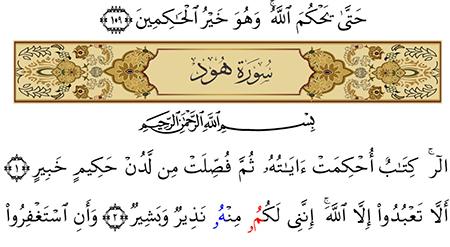 حَتَّىٰ يَحْكُمَ ٱللَّهُ ۚ وَهُوَ خَيْرُ ٱلْحَٰكِمِينَ ١٠٩
سُورَةُ هُودٍ
بِسْمِ ٱللَّهِ ٱلرَّحْمَٰنِ ٱلرَّحِيمِ
الٓر ۚ كِتَٰبٌ أُحْكِمَتْ ءَايَٰتُهُۥ ثُمَّ فُصِّلَتْ مِن لَّدُنْ حَكِيمٍ خَبِيرٍ ١
أَلَّا تَعْبُدُوٓا۟ إِلَّا ٱللَّهَ ۚ إِنَّنِى لَكُمُۥ مِنْهُۥ نَذِيرٌ وَبَشِيرٌ ٢ وَأَنِ ٱسْتَغْفِرُوا۟